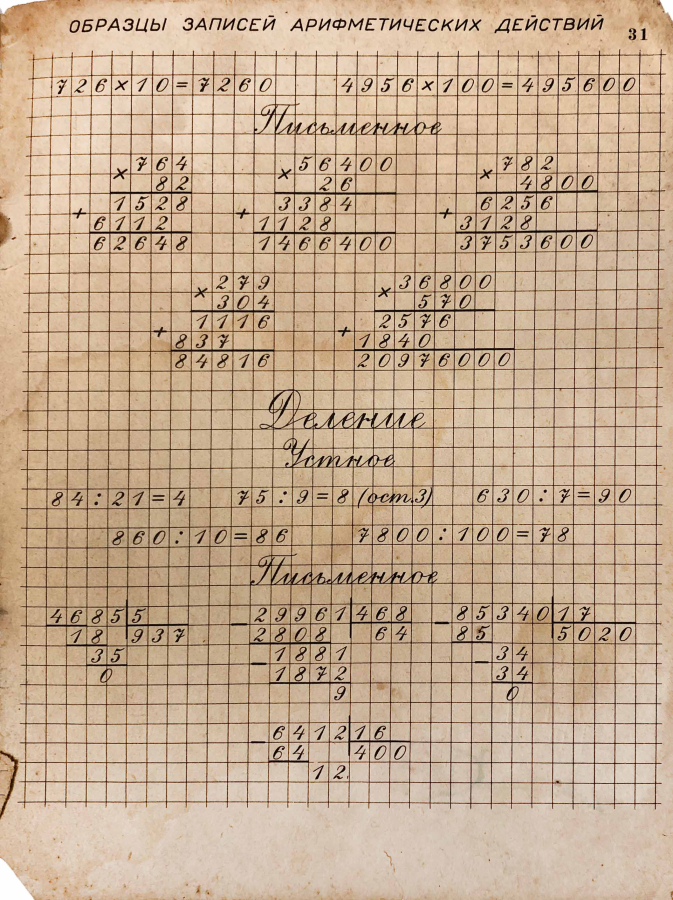 ОБРАЗЦЫ ЗАПИСЕЙ АРИФМЕТИЧЕСКИХ ДЕЙСТВИЙ 31
726×10=7260 4956×100=495600
Письменное
× 764 × 56400 × 782
82 26 4800
+ 1528 + 3384 + 6256
6112 1128 3128
62648 1466400 3753600
× 279 × 36800
304 570
+ 1116 + 2576
837 1840
84816 20976000
Деление
Устное
84:21=4 75:9=8 (ост.3) 630:7=90
860:10=86 7800:100=78
Письменное
4685 5 - 29961 468 - 85340 17
18 937 2808 64 85 5020
35 - 1881 - 34
0 1872 34
9 0
- 6412 16
64 400
12